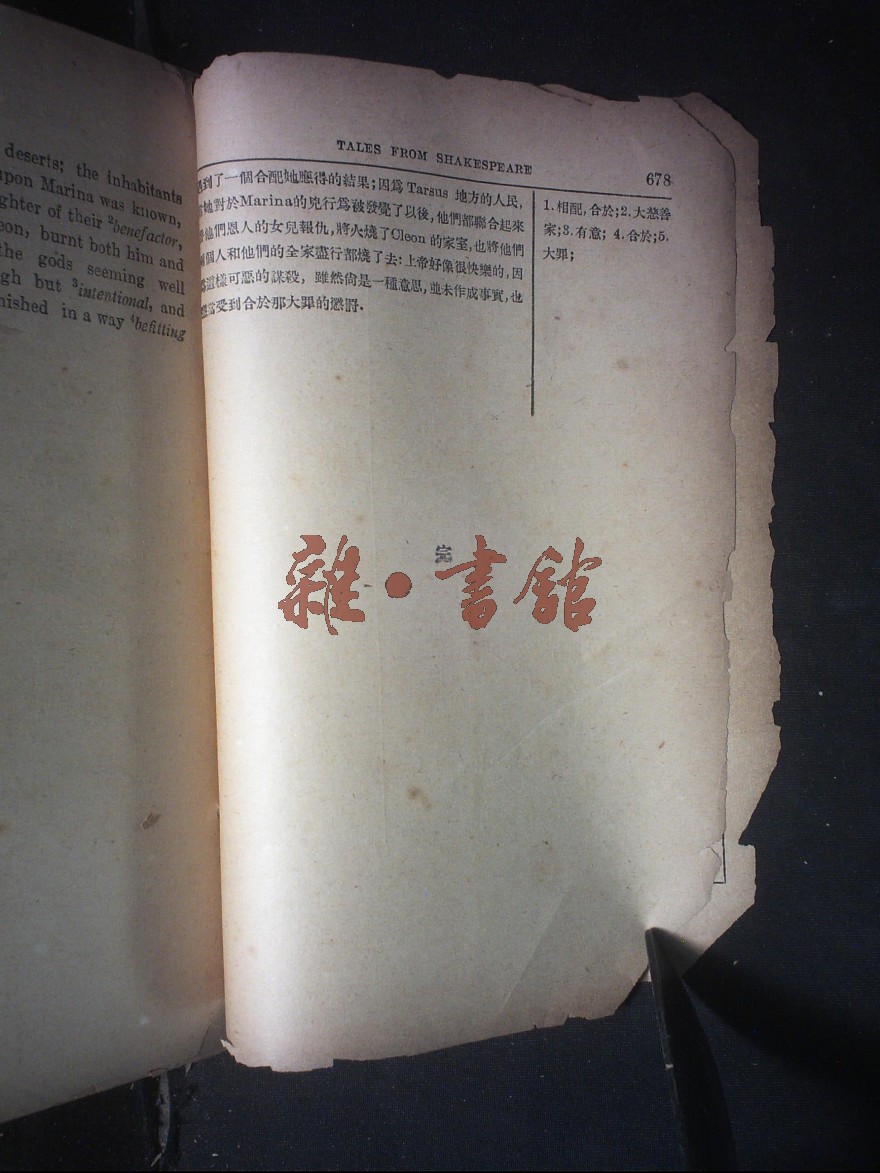 deserts; the inhabitants
upon Marina was known,
ghter of their ²benefactor,
eon, burnt both him and
the gods seeming well
gh but ³intentional, and
nished in a way ⁴befitting
TALES FROM SHAKESPEARE
678
到了一個合配她應得的結果;因爲 Tarsus 地方的人民,
她對於Marina的兇行爲被發覺了以後,他們都聯合起來
他們恩人的女兒報仇,將火燒了Cleon 的家室,也將他們
個人和他們的全家盡行都燒了去:上帝好像很快樂的,因
這樣可惡的謀殺,雖然尙是一種意思,並未作成事實,也
當受到合於那大罪的懲罸.
1.相配,合於;2.大慈善
家;3.有意; 4.合於;5.
大罪;
完
雜·書館